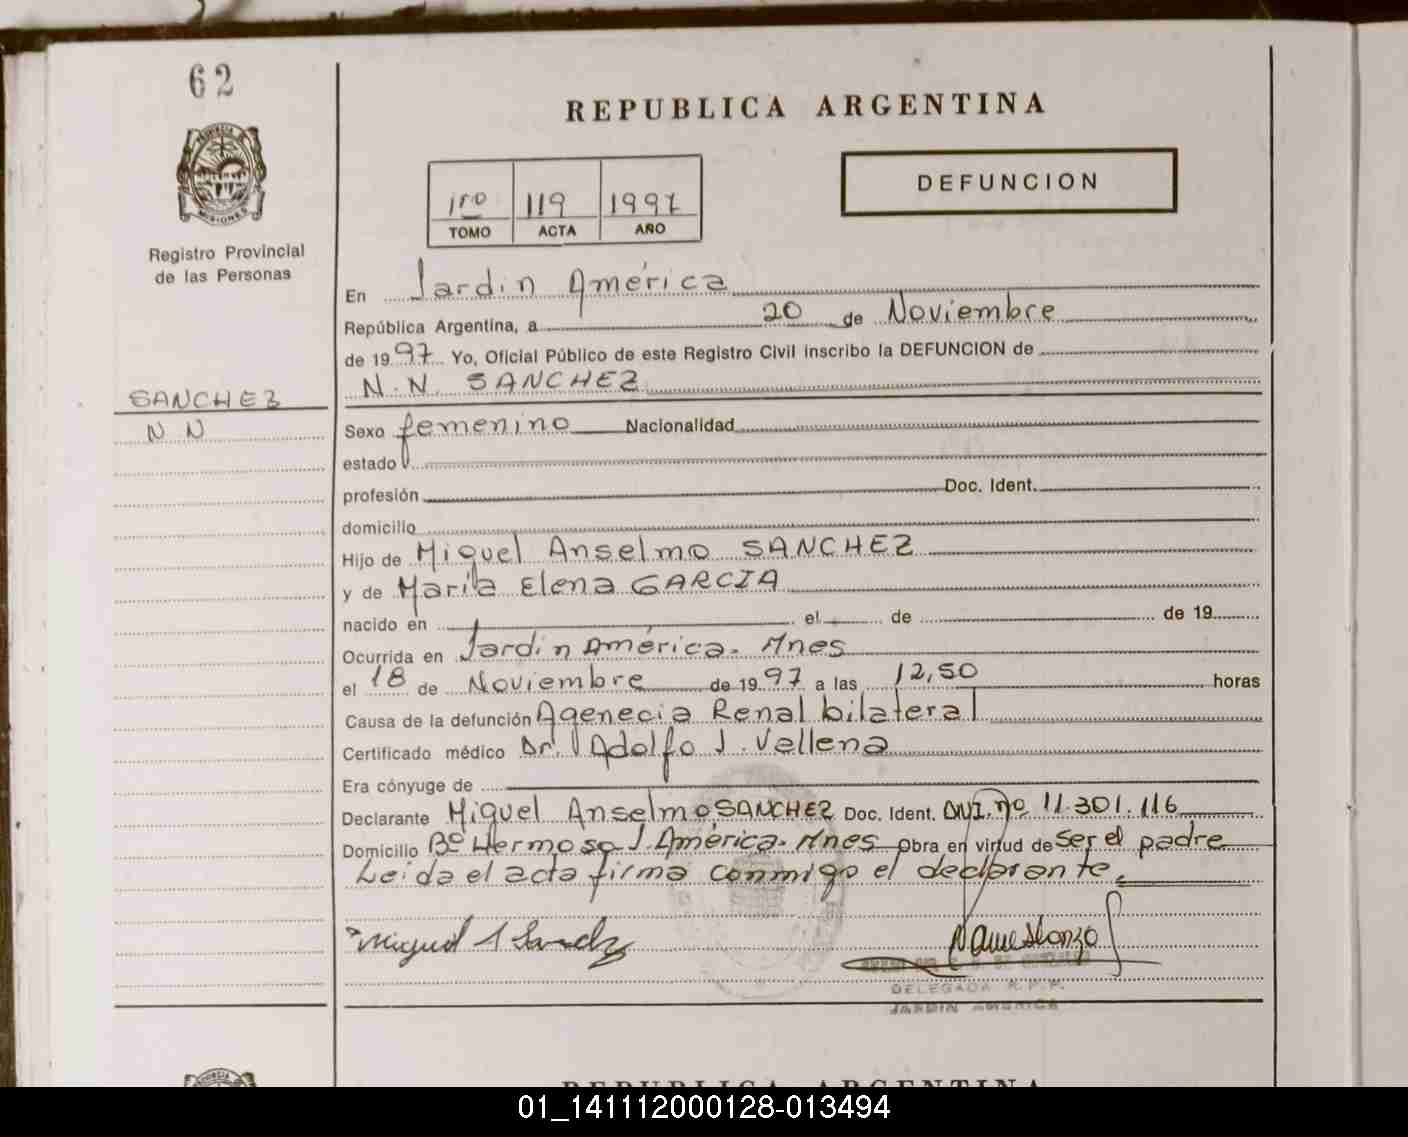 62
REPUBLICA ARGENTINA
PROVINCIA DE
MISIONES
1ro 119 1997
TOMO ACTA AÑO
DEFUNCION
Registro Provincial
de las Personas
En Jardin América
República Argentina, a 20 de Noviembre
de 1997 Yo, Oficial Público de este Registro Civil inscribo la DEFUNCION de
N.N. SANCHEZ
SANCHEZ
N N
Sexo femenino Nacionalidad
estado
profesión Doc. Ident.
domicilio
Hijo de Miguel Anselmo SANCHEZ
y de María Elena GARCIA
nacido en el de de 19
Ocurrida en Jardin América. Mnes
el 18 de Noviembre de 1997 a las 12,50 horas
Causa de la defunción Agenecia Renal bilateral
Certificado médico Dr. Adolfo J. Vellena
Era cónyuge de
Declarante Miguel Anselmo SANCHEZ Doc. Ident. DNI. nº 11.301.116
Domicilio Bº Hermoso J. América. Mnes Obra en virtud de Ser el padre
Leida el acta firma conmigo el declarante.
Miguel A Sanchez
DELEGADA R.P.P.
JARDIN AMERICA
REPUBLICA ARGENTINA
01_141112000128-013494